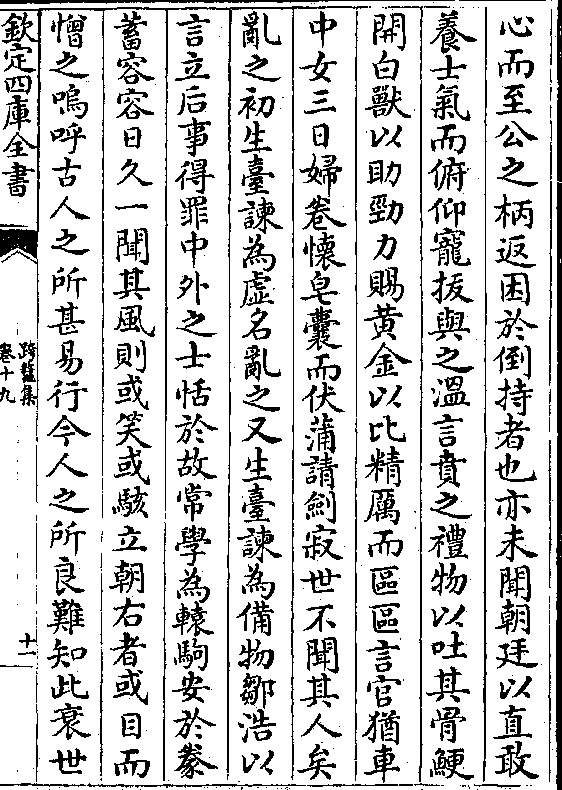 心而至公之柄返困於倒持者也亦未聞朝廷以直敢
養士氣而俯仰寵拔與之溫言賁之禮物以吐其骨鯁
開白獸以助勁力賜黃金以比精厲而區區言官猶車
中女三日婦卷懷皂囊而伏蒲請劍寂世不聞其人矣
亂之初生臺諫為虛名亂之又生臺諫為備物鄒浩以
言立后事得罪中外之士恬於故常學為轅駒安於豢
蓄容容日久一聞其風則或笑或駭立朝右者或目而
憎之嗚呼古人之所甚易行今人之所良難知此衰世
欽定四庫全書
跨鼇集
卷十九
十一